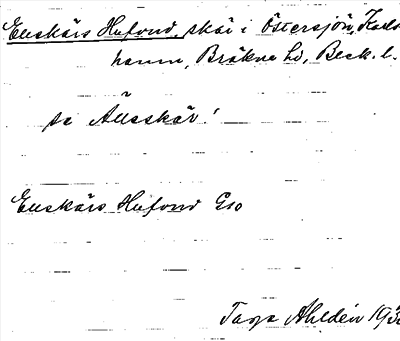 Euskärs Hufvud, skär i Östersjön, Karls
hamn, Bräkne hd, Blek. l.
se Älleskär!
Euskärs Hufvud G10
Tage Ahldén 193